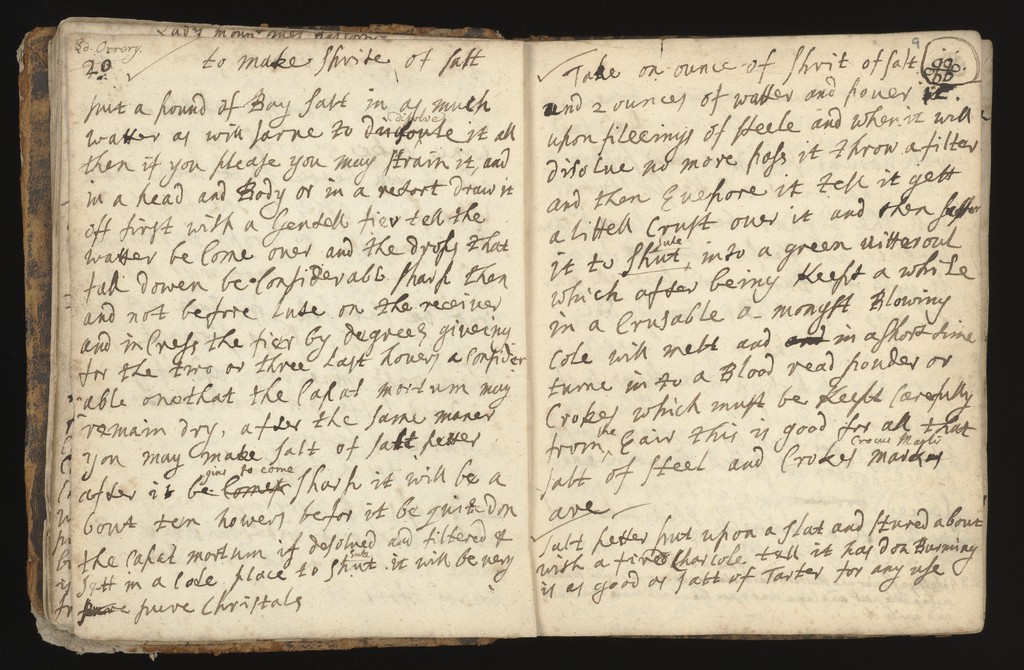 Ld. Orrery.
20
to make Spirite of salt
put a pound of Bay salt in as much
watter as will sarue to disolve it all
then if you please you may strain it, and
in a head and Body or in a retort draw it
off first with a Gentell fier tell the
watter be Come over and the drops that
fall dowen be Considerable sharp then
and not before lute on the receiver
and in Cress the fier by degrees giveing
for the two or three last howers a Consider
able one that the Capat mortum may
remain dry, after the same maner
you may make salt of salt petter
after it be gins to come Comes sharp it will be a
bout ten howers befor it be quit don
the Capat mortum if desolued and filtered &
sett in a Cole place to Shut Sute it will be very
pure Christals
9
Take on ounce of Spirit of salt
and 2 ounces of watter and pouer it
upon fileeings of steele and when it will
disolue no more pass it throw a filter
and then Euepore it tell it gett
a littell Crust over it and then
it to Shut Sute, into a green uitteroul
which after being Keept a while
in a Crusable a-mongst Blowing
Cole will melt and and in a short time
turne in to a Blood read pouder or
Crokes which must be Keept Carefully
from the Eair this is good for all that
salt of steel and Crokes Crocus Martis
are
Salt petter put upon a slat and stured about
with a fired Charcole tell it has don Burning
is as good as salt of Tarter for any use